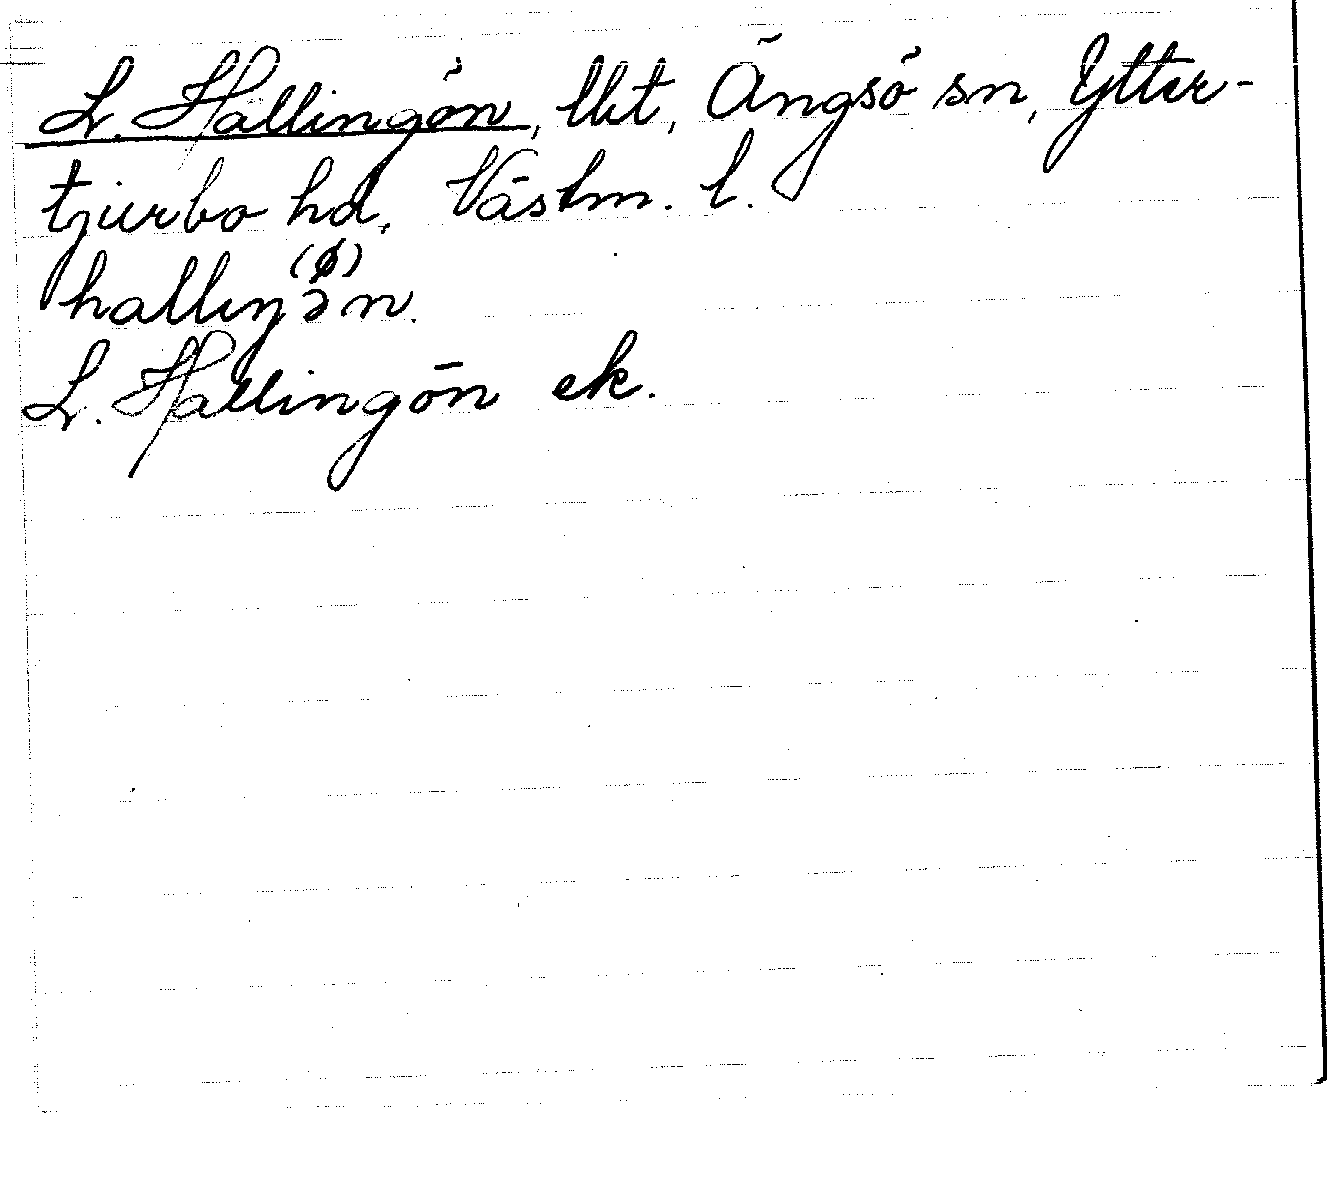 L. Hallingön, lkt, Ängsö sn, Ytter-
tjurbo hd, Västm. l.
(ø)
hallıŋən.
L. Hallingön ek.